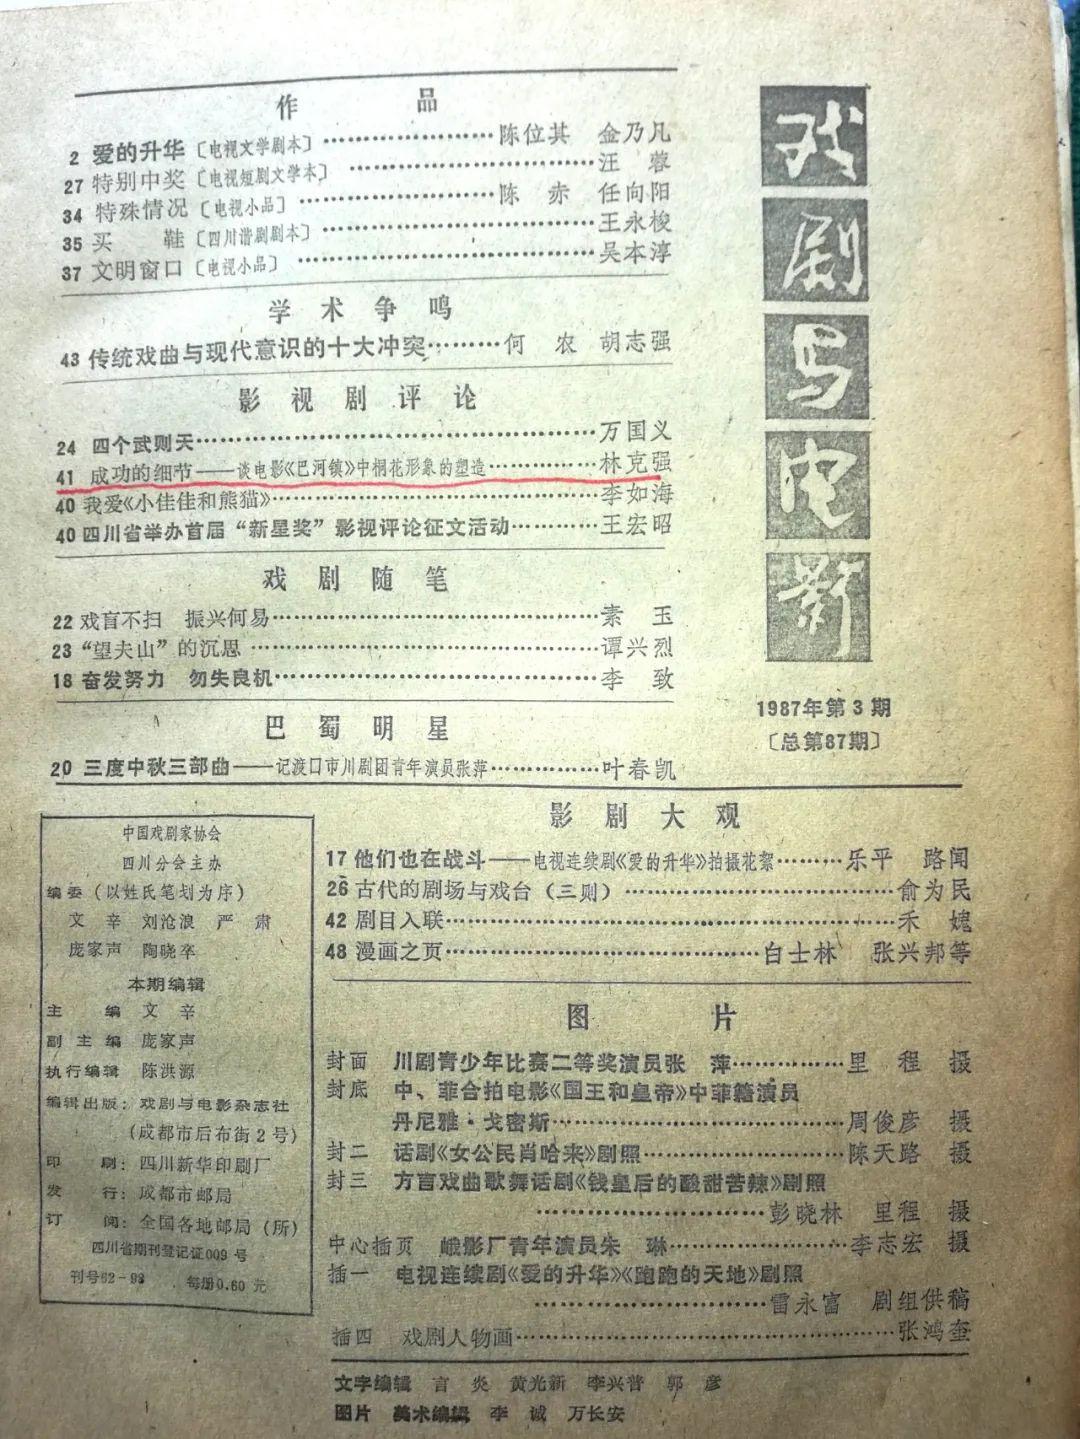 作 品
2 爱的升华〔电视文学剧本〕……陈位其 金乃凡
27 特别中奖〔电视短剧文学本〕……汪 蓉
34 特殊情况〔电视小品〕……陈 赤 任向阳
35 买 鞋〔四川谐剧剧本〕……王永梭
37 文明窗口〔电视小品〕……吴本淳
学 术 争 鸣
43 传统戏曲与现代意识的十大冲突……何 农 胡志强
影 视 剧 评 论
24 四个武则天……万国义
41 成功的细节——谈电影《巴河镇》中桐花形象的塑造……林克强
40 我爱《小佳佳和熊猫》……李如海
40 四川省举办首届“新星奖”影视评论征文活动……王宏昭
戏 剧 随 笔
22 戏盲不扫 振兴何易……素 玉
23 “望夫山”的沉思……谭兴烈
18 奋发努力 勿失良机……李 致
巴 蜀 明 星
20 三度中秋三部曲——记渡口市川剧团青年演员张萍……叶春凯
戏剧与电影
1987年第3期
〔总第87期〕
中国戏剧家协会
四川分会主办
编委（以姓氏笔划为序）
文 辛 刘沧浪 严 肃
庞家声 陶晓卒
本期编辑
主 编 文 辛
副 主 编 庞家声
执行编辑 陈洪源
编辑出版：戏剧与电影杂志社
（成都市后布街2号）
印 刷：四川新华印刷厂
发 行：成都市邮局
订 阅：全国各地邮局（所）
四川省期刊登记证009号
刊号62-93 每册0.60元
影 剧 大 观
17 他们也在战斗——电视连续剧《爱的升华》拍摄花絮……乐平 路闻
26 古代的剧场与戏台（三则）……俞为民
42 剧目入联……禾 媿
48 漫画之页……白士林 张兴邦等
图 片
封面 川剧青少年比赛二等奖演员张 萍……里 程 摄
封底 中、菲合拍电影《国王和皇帝》中菲籍演员
丹尼雅·戈密斯……周俊彦 摄
封二 话剧《女公民肖哈来》剧照……陈天路 摄
封三 方言戏曲歌舞话剧《钱皇后的酸甜苦辣》剧照
……彭晓林 里程 摄
中心插页 峨影厂青年演员朱 琳……李志宏 摄
插一 电视连续剧《爱的升华》《跑跑的天地》剧照
……雷永富 剧组供稿
插四 戏剧人物画……张鸿奎
文字编辑 言 炎 黄光新 李兴普 郭 彦
图片 美术编辑 李 诚 万长安